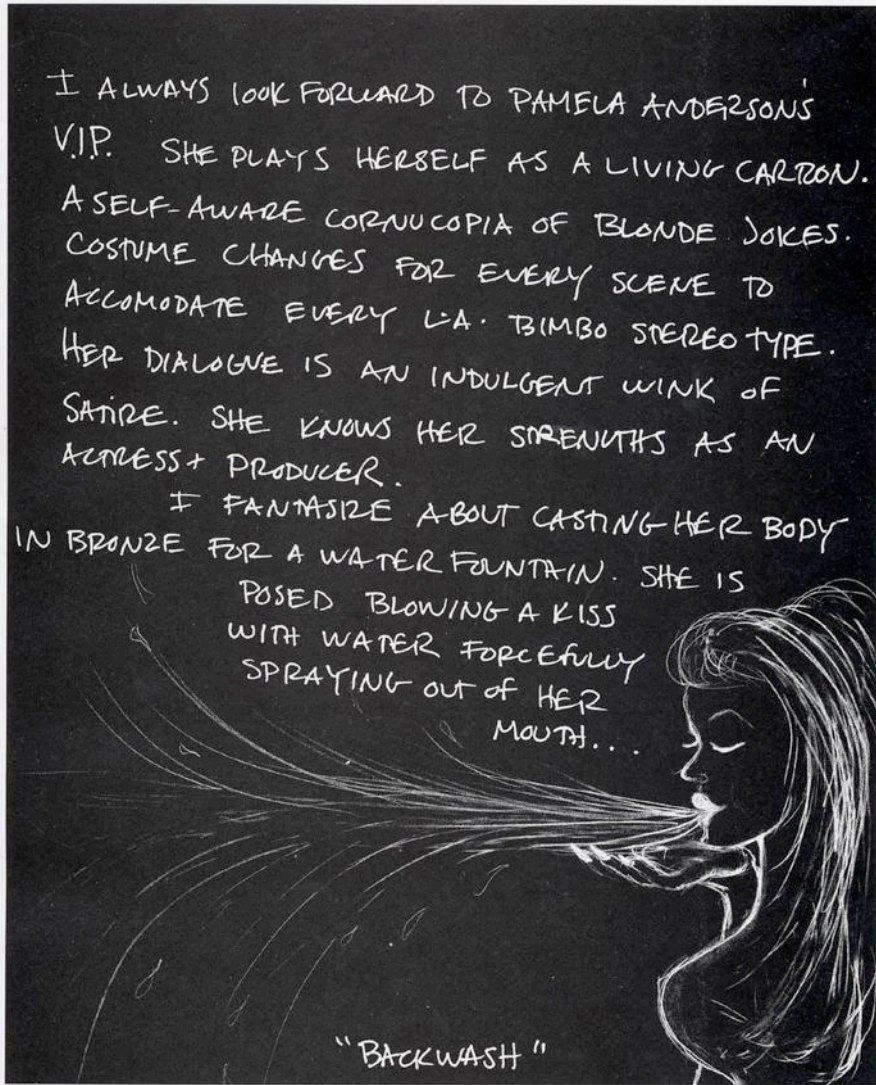 I ALWAYS LOOK FORWARD TO PAMELA ANDERSON'S
V.I.P. SHE PLAYS HERSELF AS A LIVING CARTOON.
A SELF-AWARE CORNUCOPIA OF BLONDE JOKES.
COSTUME CHANGES FOR EVERY SCENE TO
ACCOMODATE EVERY L.A. BIMBO STEREOTYPE.
HER DIALOGUE IS AN INDULGENT WINK OF
SATIRE. SHE KNOWS HER STRENGTHS AS AN
ACTRESS + PRODUCER.
I FANTASIZE ABOUT CASTING HER BODY
IN BRONZE FOR A WATER FOUNTAIN. SHE IS
POSED BLOWING A KISS
WITH WATER FORCEFULLY
SPRAYING OUT OF HER
MOUTH....
"BACKWASH"